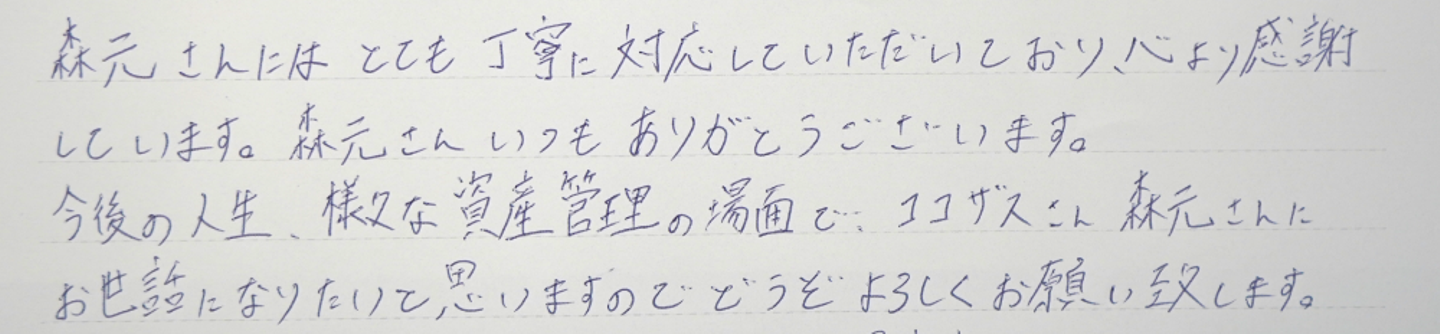 森元さんには とても 丁寧に 対応していただいており、心より感謝
しています。森元さん いつも ありがとうございます。
今後の人生、様々な資産管理の場面で、ココザスさん 森元さんに
お世話になりたいと思いますのでどうぞよろしくお願い致します。